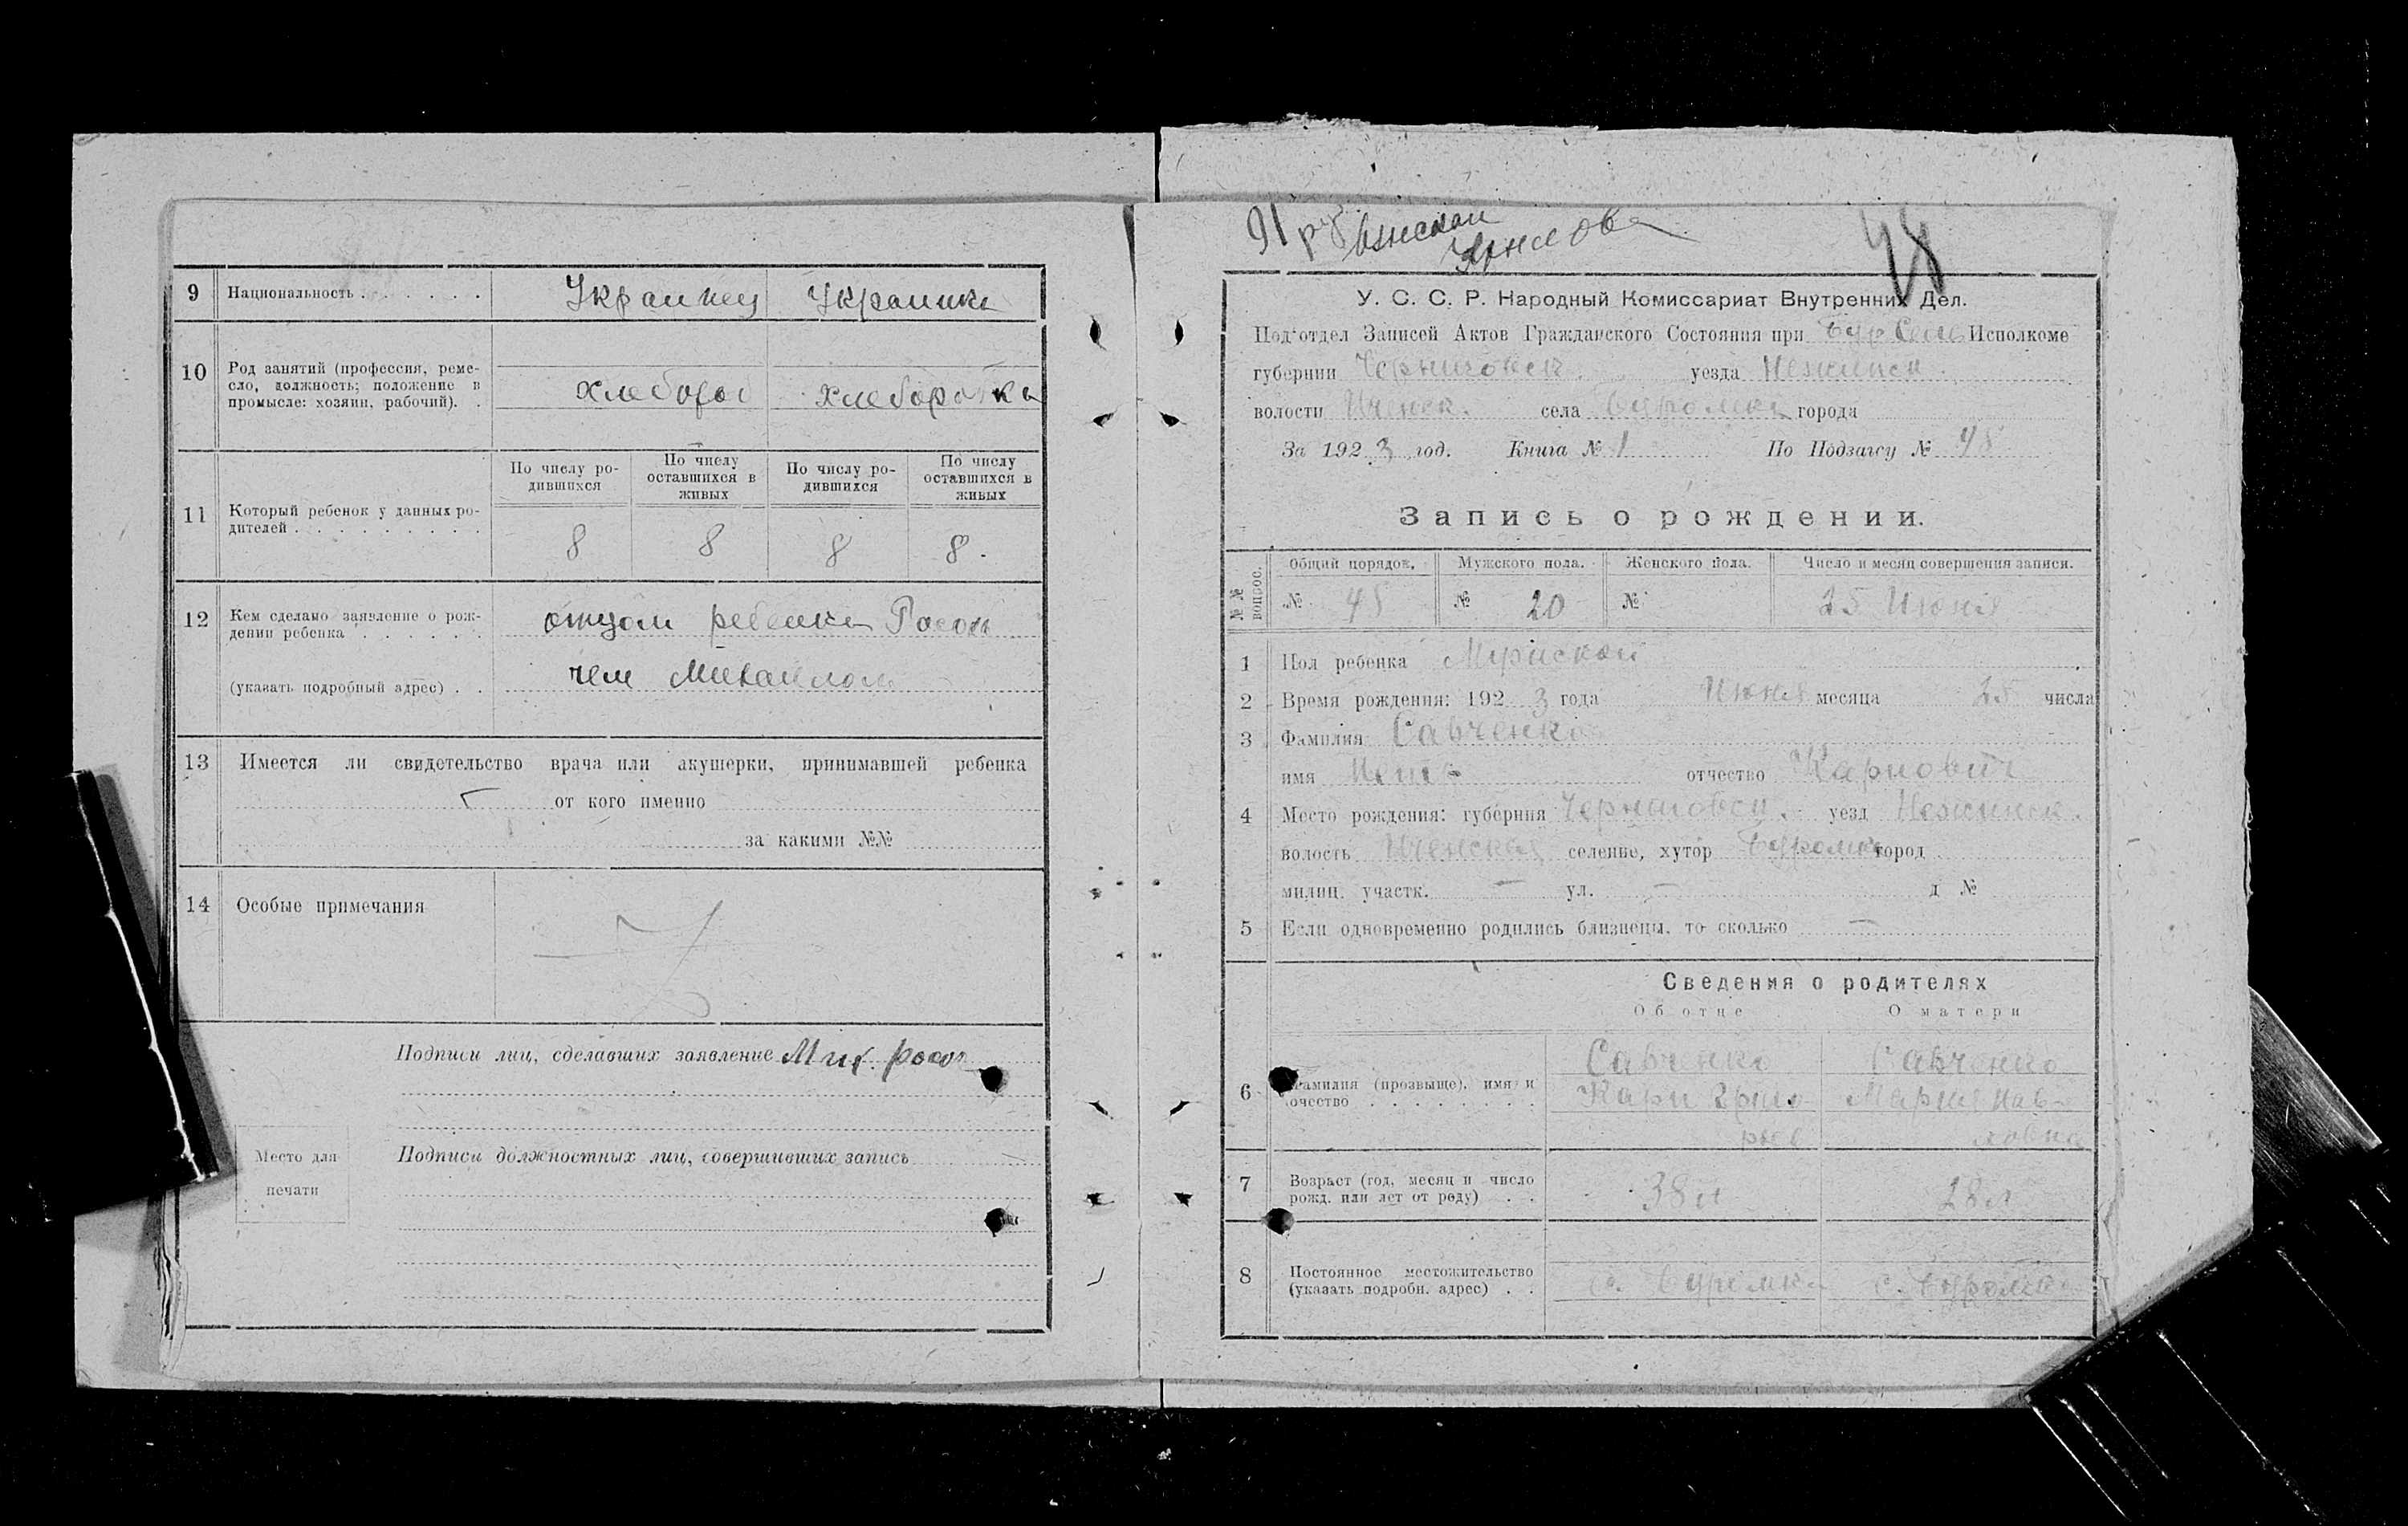 9 Национальность . . . . . . Украинец Украинка
10 Род занятий (профессия, реме-
сло, должность; положение в
промысле: хозяин, рабочий). . хлебороб хлеборобка
11 Который ребенок у данных ро-
дителей . . . . . . . . .
По числу ро-
дившихся
По числу
оставшихся в
живых
По числу ро-
дившихся
По числу
оставшихся в
живых
8 8 8 8.
12 Кем сделано заявление о рож-
дении ребенка . . . . . . отцом ребенка
(указать подробный адрес) . . чем Михаилом
13 Имеется ли свидетельство врача или акушерки, принимавшей ребенка
от кого именно
за какими №№
14 Особые примечания
Подписи лиц, сделавших заявление Мих.
Место для
печати
Подписи должностных лиц, совершивших запись
48
У. С. С. Р. Народный Комиссариат Внутренних Дел.
Под'отдел Записей Актов Гражданского Состояния при Исполкоме
губернии Черниговск. уезда Нежинск.
волости Иченск. села Буромка города
За 1923 год. Книга № 1 По Подзагсу № 48
Запись о рождении.
№№ вопрос. Общий порядок. Мужского пола. Женского пола. Число и месяц совершения записи.
№ 48 № 20 № 25 Июня
1 Пол ребенка Мужской
2 Время рождения: 1923 года Июня месяца 25 числа
3 Фамилия Савченко
имя отчество Карпович
4 Место рождения: губерния Черниговск. уезд Нежинск.
волость Иченская селение, хутор Буромка город
милиц. участк. — ул. — д №
5 Если одновременно родились близнецы, то сколько —
Сведения о родителях
Об отце О матери
6 Фамилия (прозвище), имя и
отчество . . . . . . . .
Савченко
Карп Григо
рьев
Савченко
Мария Пав-
ловна
7 Возраст (год, месяц и число
рожд. или лет от роду) . . 38 л 28 л
8 Постоянное местожительство
(указать подробн. адрес) . . с. Буромка с. Буромка